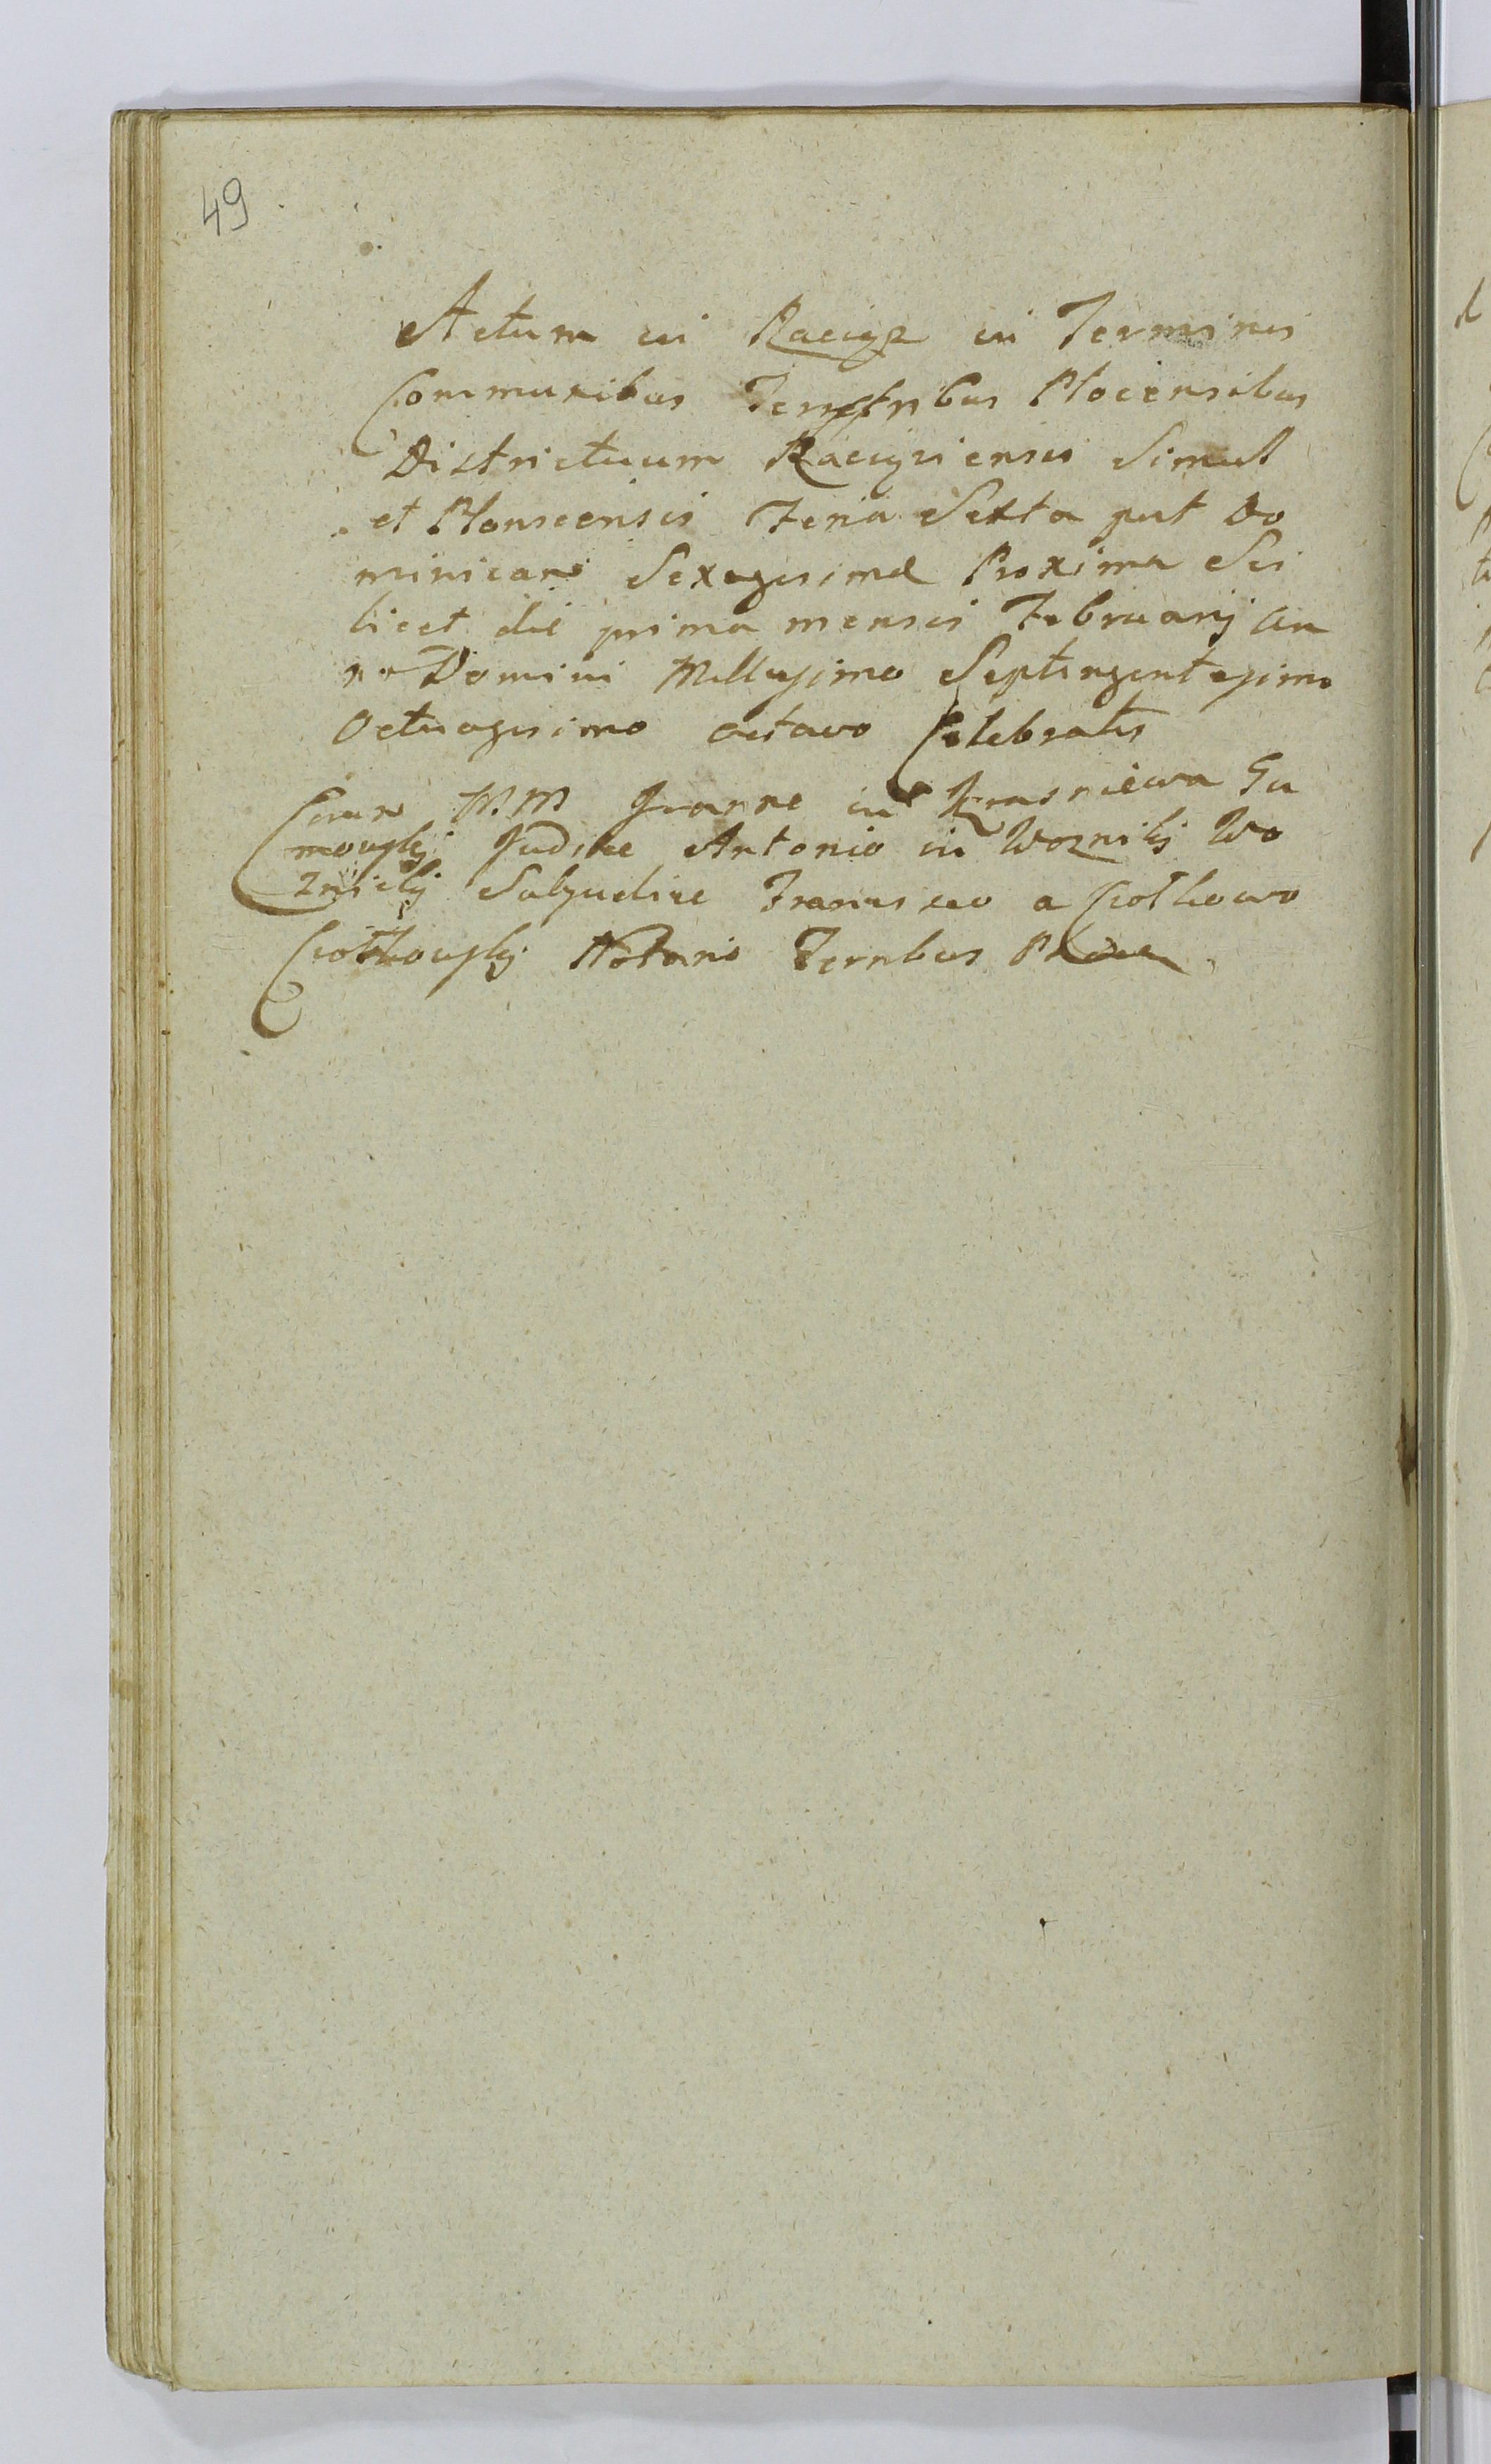 49
Actum in Raciąz in Terminis
Communibus Terrestribus Plocensibus
Districtuum Raciąziensis Simul
et Plonscensis Feria Sexta post Do
minicam Sexagesimæ Proxima Sci
licet die prima mensis Februarij An
no Domini Millesimo Septingentesimo
Octuagesimo octavo Celebratis
Coram M. M. Joanne in Krasniewa Gu
mowskj Judice Antonio in Wozniki Wo
znickj Subjudice Francisco a Ciołkowo
Ciołkowskj Notario Terrbus